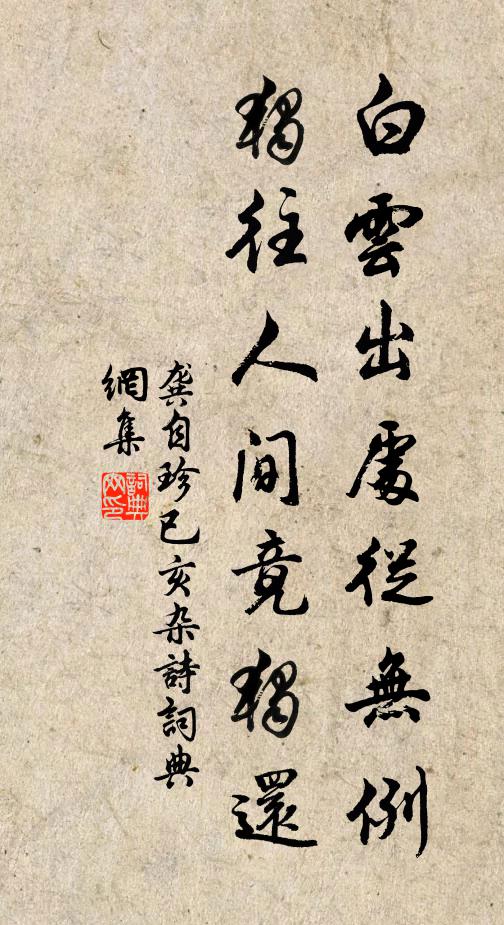 白雲出處從無例
獨往人間竟獨還
龔自珍已亥杂詩詞典
網集
詞典網印